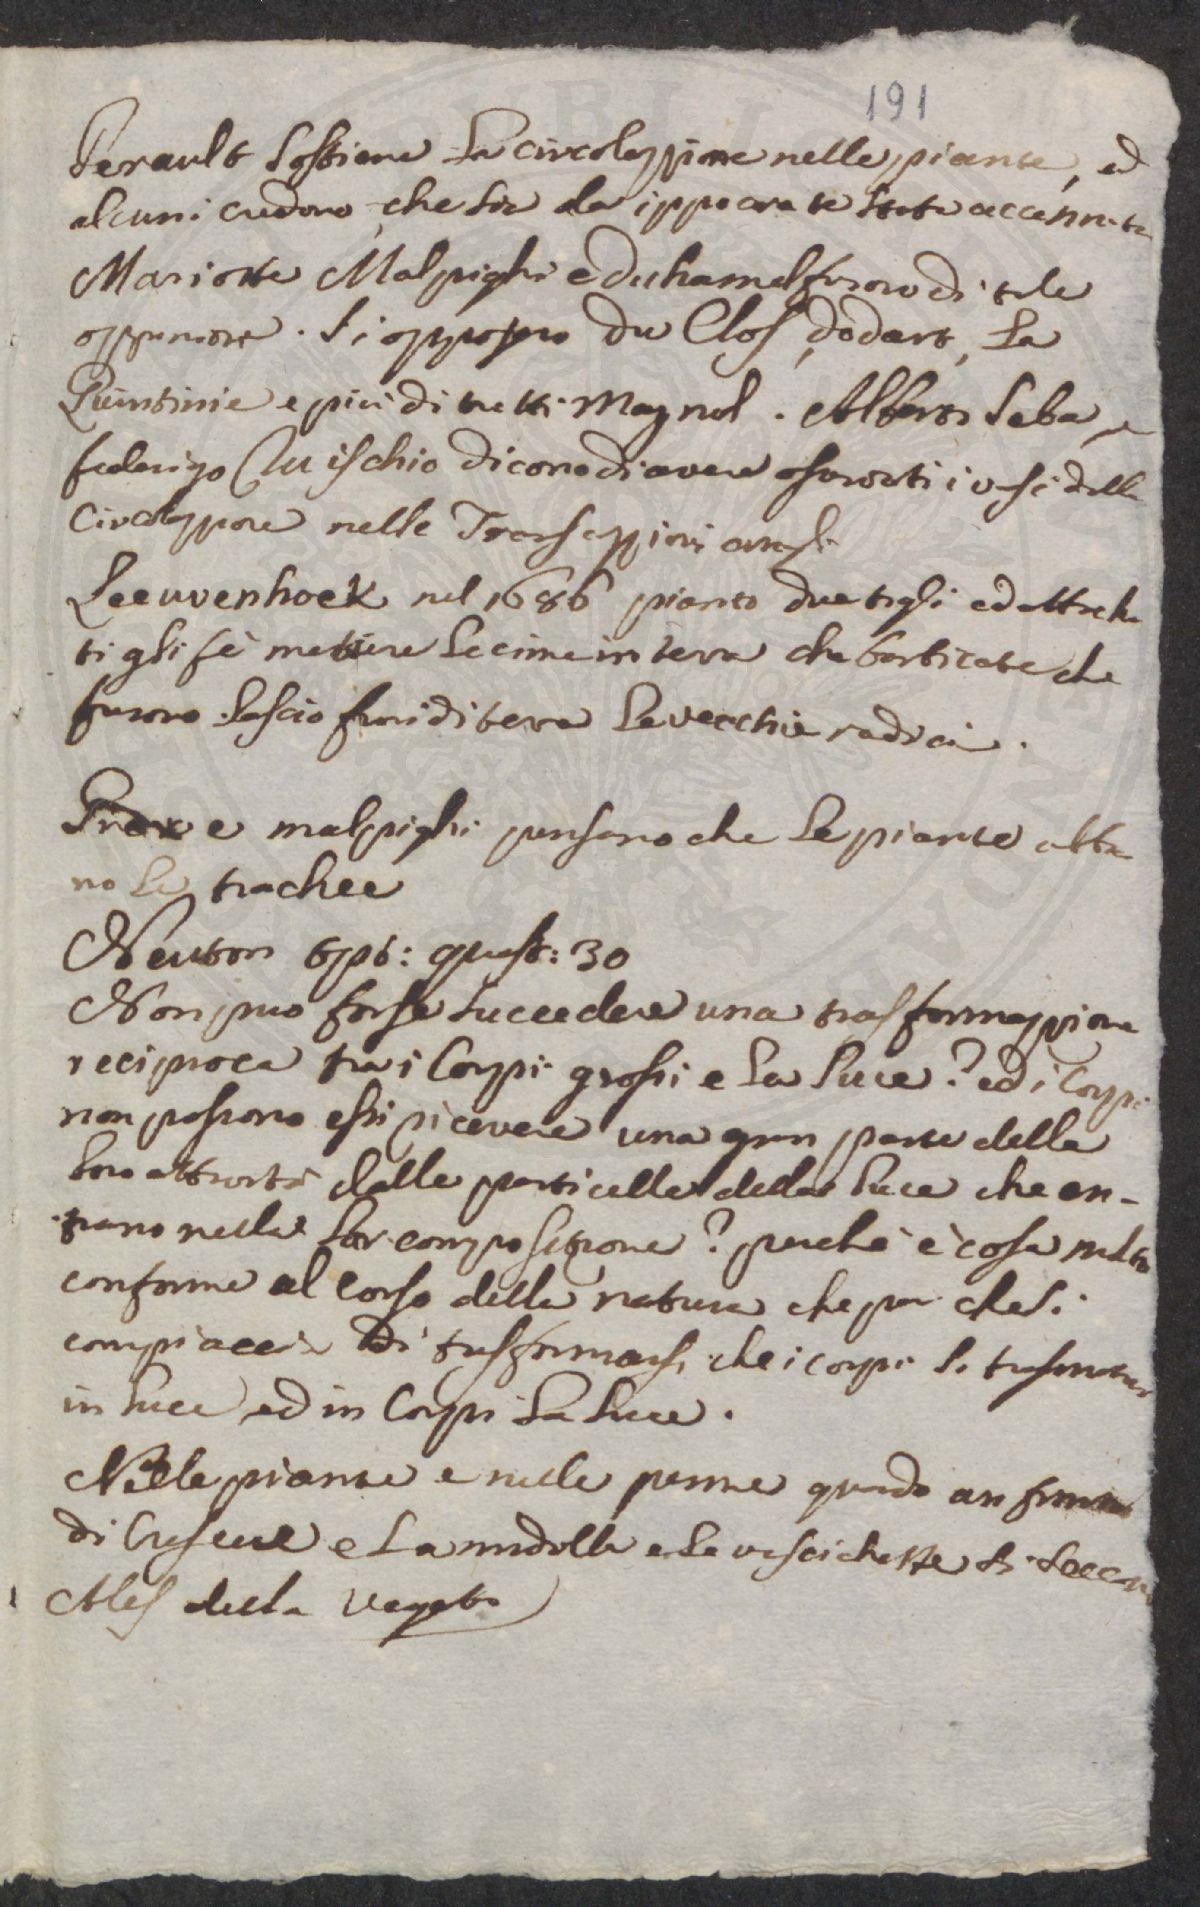 191
Perault sostiene la circolazzione nelle piante, ed
alcuni credono che sia da ippocrate stata accennata
Mariotte Malpighi e duhamel furono di tale
oppinione. Si opposero du Clos, dodart, la
Quintinie e più di tutti Magnol. Alberto Seba, e
federigo Ruischio dicono di avere osservati i vasi della
Circolazzione nelle Transazzioni angli
Leeuvenhoek nel 1686 piantò due tigli ed altre
tigli fè mettere le cime in terra che barbicate che
furono lasciò fuori di terra le vecchie radici.
e malpighi pensano che le piante abbia
no le trachee
Neuton opt: quest: 30
Non puo forse succedere una trasformazzione
reciproca tra i Corpi grossi e la luce? ed i Corpi
non possono essi ricevere una gran parte della
loro attività dalle particelle della luce che en-
trano nella lor composizione? perchè è cosa molto
conforme al corso della natura che par che si
compiaccia di trasformarsi che i corpi si trasmutino
in luce ed in Corpi la luce.
Nelle piante e nelle penne quando an finito
di Crescere e la midolla e le vescichette si seccano
Ales della Vegeta